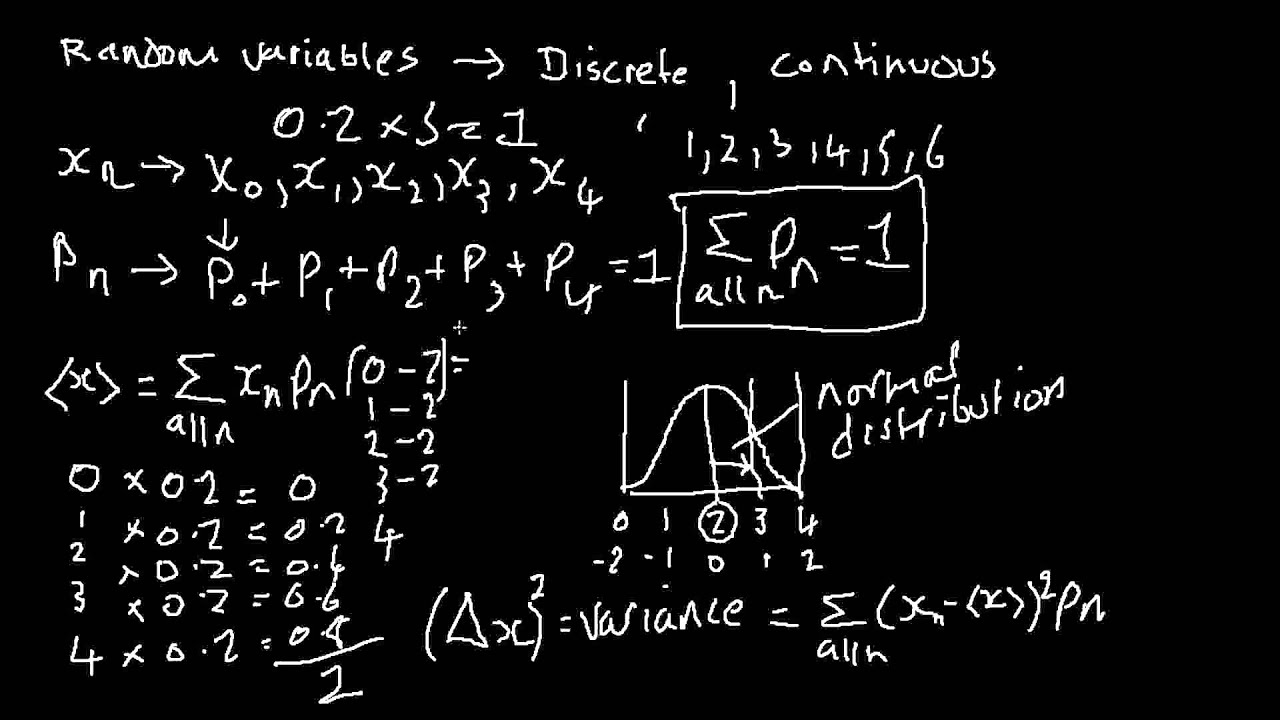 Random variables → Discrete, continuous
0.2 x 5 = 1
1, 2, 3, 4, 5, 6
xn → x0, x1, x2, x3, x4
Pn → P0 + P1 + P2 + P3 + P4 = 1
∑ Pn = 1
all n
⟨x⟩ = ∑ xn Pn
all n
(0 - 2) =
1 - 2
2 - 2
3 - 2
4
0 x 0.2 = 0
1 x 0.2 = 0.2
2 x 0.2 = 0.4
3 x 0.2 = 0.6
4 x 0.2 = 0.8
2
normal
distribution
0 1 2 3 4
-2 -1 0 1 2
(Δx)² = variance = ∑ (xn - ⟨x⟩)² Pn
all n